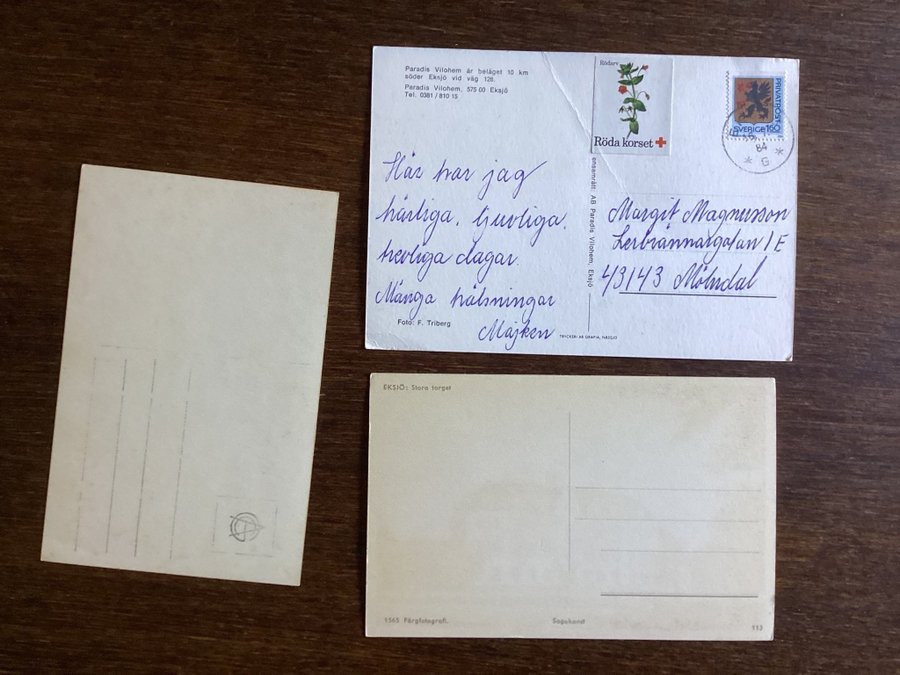 Paradis Vilohem är beläget 10 km
söder Eksjö vid väg 128.
Paradis Vilohem, 575 00 Eksjö
Tel. 0381/810 15
Rödarv
Röda korset
PRIVATPOST
SVERIGE 160
84
* G *
Här har jag
härliga, ljuvliga,
herliga dagar.
Många hälsningar
Majken
Foto: F. Triberg
ensamrätt: AB Paradis Vilohem, Eksjö
TRYCKERI AB GRAFIA, NÄSSJÖ
Margit Magnusson
43143 Mölndal
EKSJÖ: Stora torget
1565 Färgfotografi.
Sagokonst
113